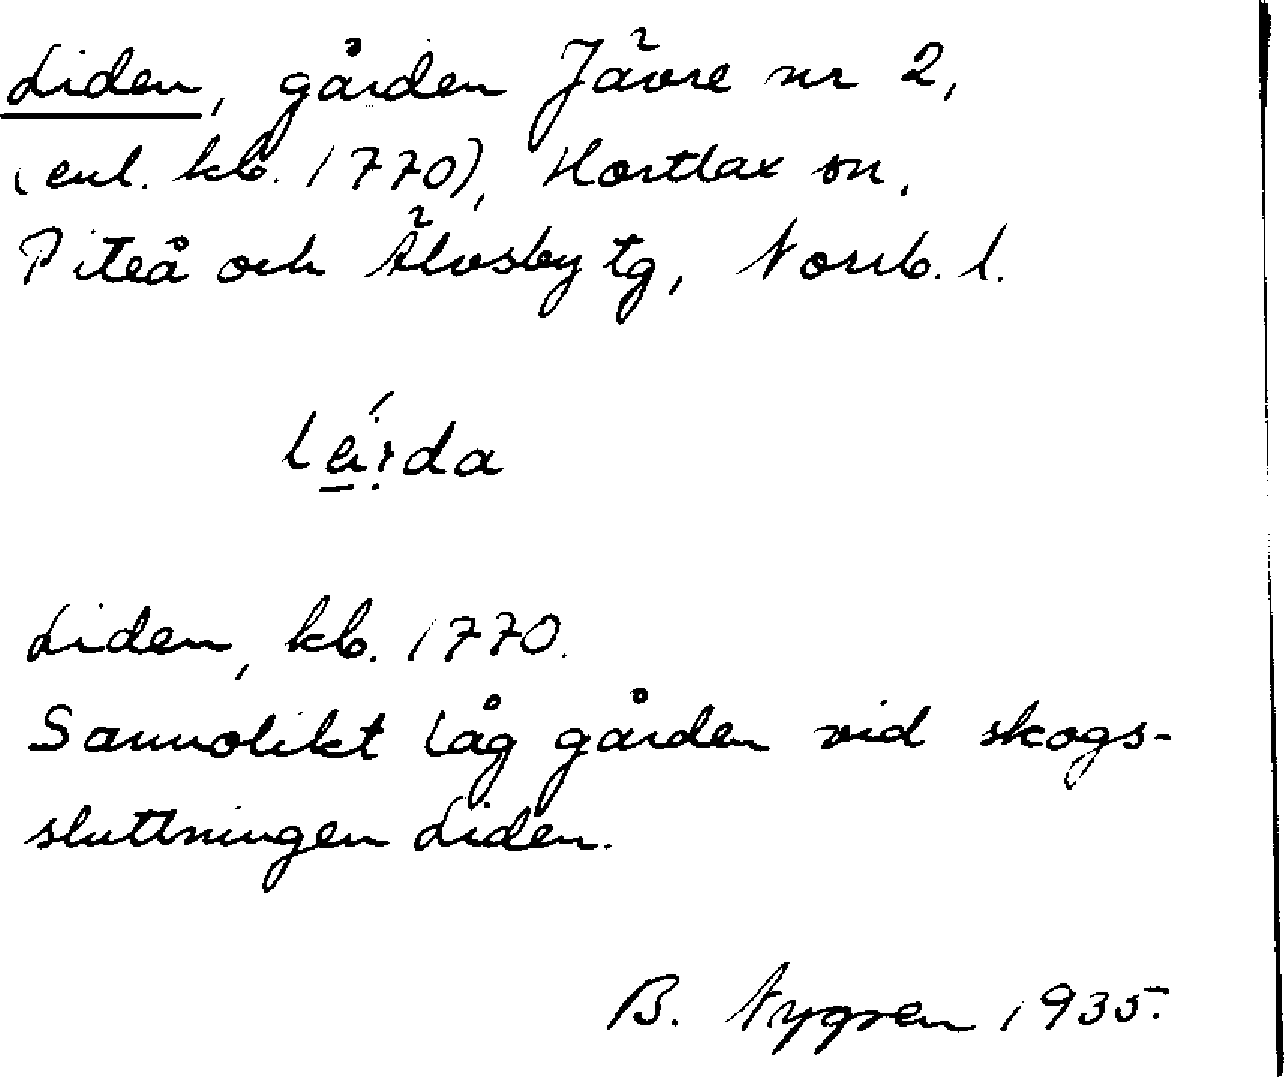 Liden, gården Jävre nr 2,
(enl. kb. 1770), Hortlax sn,
Piteå och Älvsby tg, Norrb. l.
Liden, kb. 1770.
Sannolikt låg gården vid skogs-
sluttningen Liden.
B. Nygren 1935.